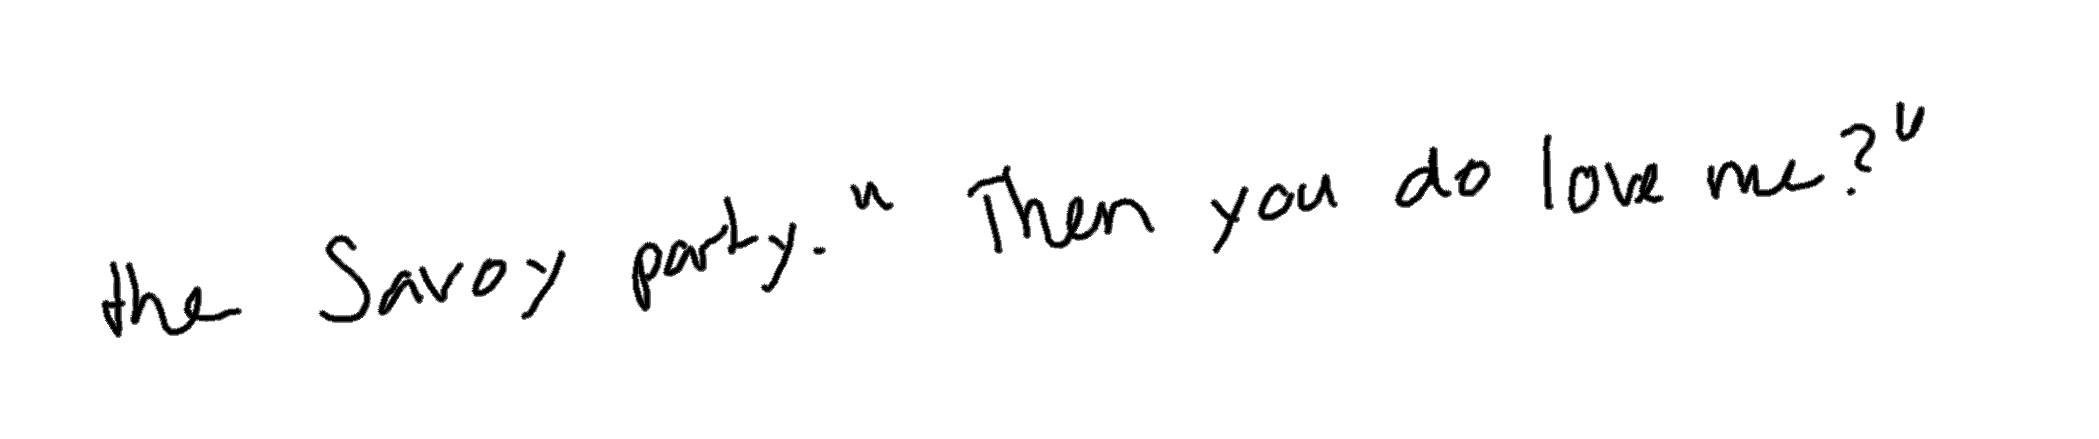 the Savoy party. " Then you do love me ? "